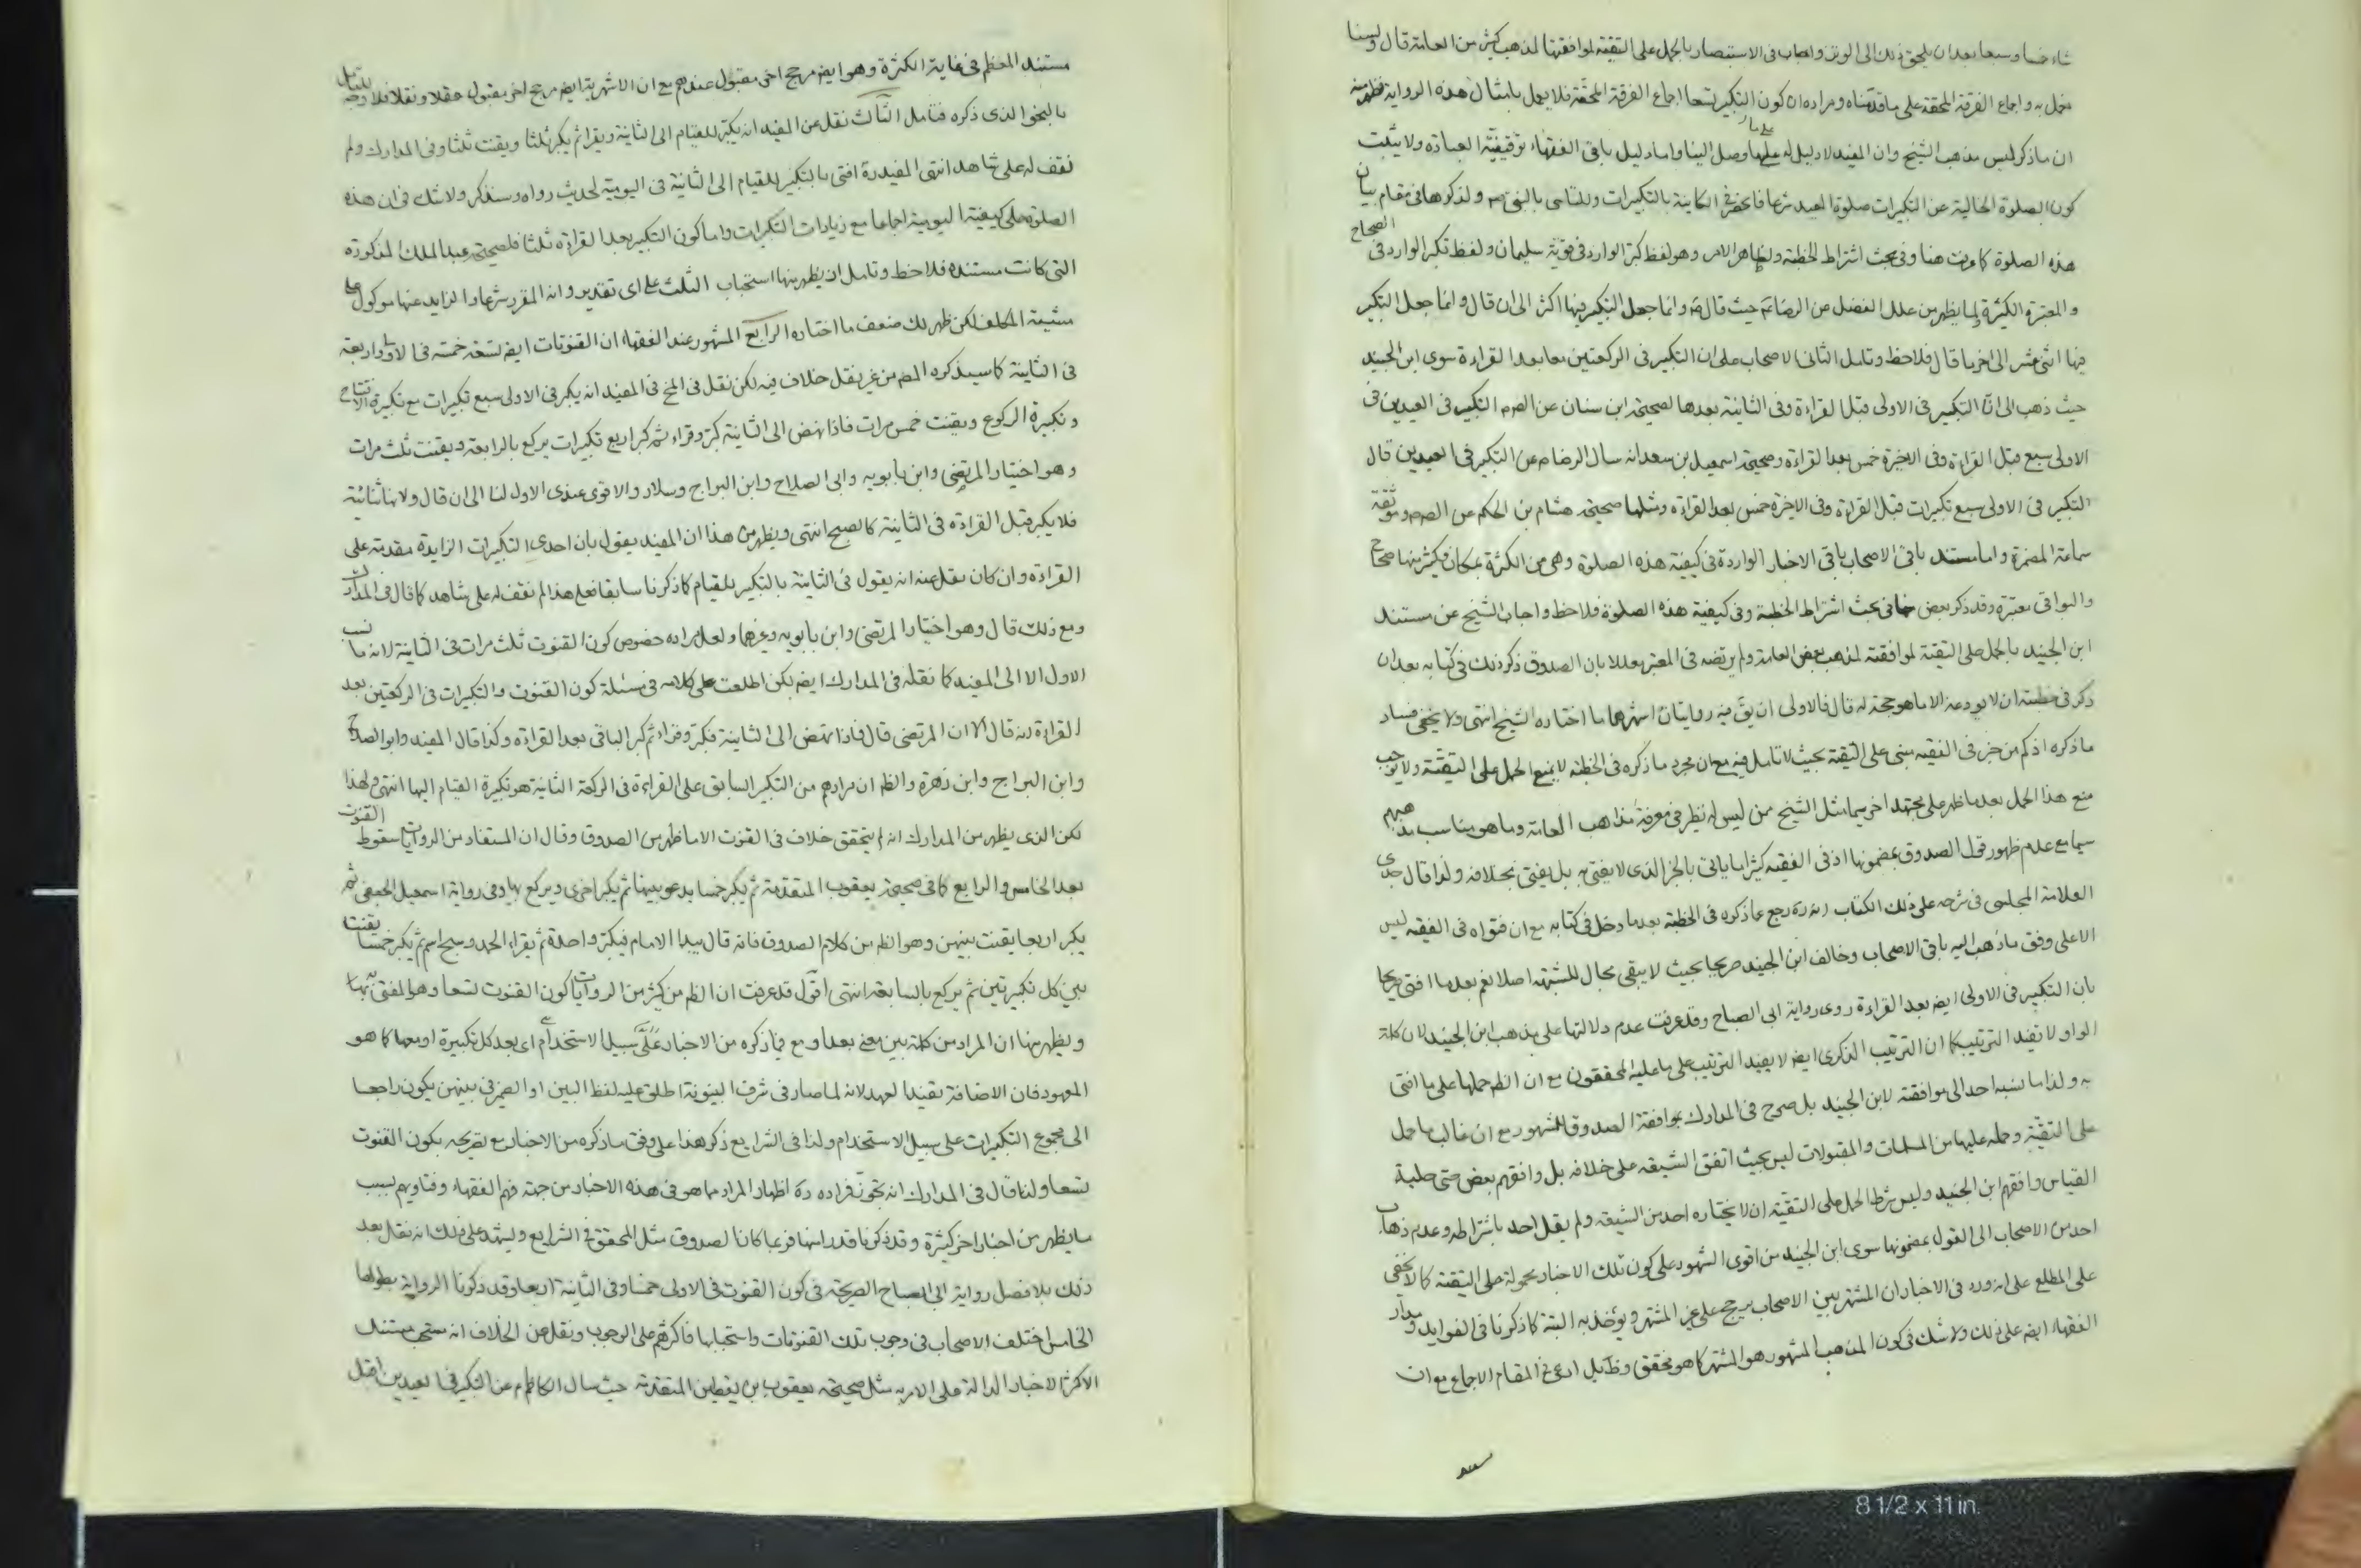 شاء خمسا وسبعا بعد ان يلحق ذلك الى الوتر واجاب فى الاستبصار بالحمل على التقية لموافقتها لمذهب كثير من العامة قال ولسنا
نعمل به واجماع الفرقة المحقة على ما قدمناه ومراده ان كون التكبير تسعا اجماع الفرقة المحقة فلا يعمل بامثال هذه الرواية فظهر منه
ان ما ذكر ليس مذهب الشيخ وان المفيد لا دليل له على ما وصل الينا واما دليل باقى الفقهاء توقيفية العبادة ولا يثبت
كون الصلوة الخالية عن التكبيرات صلوة العيد شرعا فانحصر فى الكاينة بالتكبيرات وللتاسى بالنبى ص ولذكرها فى مقام بيان
هذه الصلوة كما عرفت هنا وفى بحث اشتراط الخطبة ولظاهر الامر وهو لفظ كبر الوارد فى قوية سليمان ولفظ تكبر الوارد فى الصحاح
والمعتبرة الكثيرة ولما يظهر من علل الفضل عن الرضا ع حيث قال ع وانما جعل التكبير فيها اكثر الى ان قال وانما جعل التكبير
فيها اثنى عشر الى اخر ما قال فلاحظ وتامل الثانى الاصحاب على ان التكبير فى الركعتين معا بعد القراءة سوى ابن الجنيد
حيث ذهب الى ان التكبير فى الاولى قبل القراءة وفى الثانية بعدها لصحيحة ابن سنان عن الص ع التكبير فى العيدين فى
الاولى سبع قبل القراءة وفى الاخيرة خمس بعد القراءة وصحيحة اسمعيل بن سعد انه سال الرضا ع عن التكبير فى العيدين قال
التكبير فى الاولى سبع تكبيرات قبل القراءة وفى الاخيرة خمس بعد القراءة ومثلها صحيحة هشام بن الحكم عن الص ع وموثقة
سماعة المضمرة واما مستند باقى الاصحاب باقى الاخبار الواردة فى كيفية هذه الصلوة وهى من الكثرة بمكان وكثير منها صحاح
والبواقى معتبرة وقد ذكر بعض منها فى بحث اشتراط الخطبة وفى كيفية هذه الصلوة فلاحظ واجاب الشيخ عن مستند
ابن الجنيد بالحمل على التقية لموافقته لمذهب بعض العامة ولم يرتضه فى المعتبر معللا بان الصدوق ذكر ذلك فى كتابه بعد ان
ذكر فى خطبته ان لا يودعه الا ما هو حجة له قال فالاولى ان يق فيه روايتان اشهرهما ما اختاره الشيخ انتهى ولا يخفى فساد
ما ذكره اذ كم من خبر فى الفقيه مبنى على التقية بحيث لا تامل فيه مع ان مجرد ما ذكره فى الخطبة لا يمنع الحمل على التقية ولا يوجب
منع هذا الحمل بعد ما ظهر على مجتهد اخر سيما مثل الشيخ ممن ليس له نظير فى معرفة مذاهب العامة وما هو يناسب مذهبهم
سيما مع عدم ظهور قول الصدوق بمضمونها اذ فى الفقيه كثيرا ما ياتى بالخبر الذى لا يفتى به بل يفتى بخلافه ولذا قال جدى
العلامة المجلسى فى شرحه على ذلك الكتاب انه ره رجع عما ذكره فى الخطبة بعد ما دخل فى كتابه مع ان فتواه فى الفقيه ليس
الا على وفق ما ذهب اليه باقى الاصحاب وخالف ابن الجنيد صريحا بحيث لا يبقى مجال للشبهة اصلا نعم بعد ما افتى صريحا
بان التكبير فى الاولى ايضا بعد القراءة روى رواية ابى الصباح وقد عرفت عدم دلالتها على مذهب ابن الجنيد لان كلمة
الواو لا تفيد الترتيب كما ان الترتيب الذكرى ايضا لا يفيد الترتيب على ما عليه المحققون مع ان الظ حملها على ما افتى
به ولذا ما نسبه احد الى موافقته لابن الجنيد بل صرح فى المدارك بموافقة الصدوق للمشهور مع ان غالب ما حمل
على التقية وحمله عليها من المسلمات والمقبولات ليس بحيث اتفق الشيعة على خلافه بل وافقهم بعض حتى حلية
القياس وافقهم ابن الجنيد وليس شرط الحمل على التقية ان لا يختاره احد من الشيعة ولم يقل احد باشتراطه وعدم ذهاب
احد من الاصحاب الى القول بمضمونها سوى ابن الجنيد من اقوى الشهود على كون تلك الاخبار محمولة على التقية كما لا يخفى
على المطلع على انه ورد فى الاخبار ان المشتهر بين الاصحاب يرجح على غير المشتهر ويؤخذ به البتة كما ذكرنا فى الفوايد ومدار
الفقهاء ايضا على ذلك ولا شك فى كون المذهب المشهور هو المشتهر كما هو محقق وظ بل ادعى فى المقام الاجماع مع ان
مستند المعظم فى غاية الكثرة وهو ايضا مرجح اخر مقبول عندهم مع ان الاشهرية ايضا مرجح اخر مقبول عقلا ونقلا فلا وجه للتامل
بالنحو الذى ذكره فتامل الثالث نقل عن المفيد انه يكبر للقيام الى الثانية ويقرا ثم يكبر ثلثا ويقنت ثلثا وفى المدارك ولم
نقف له على شاهد انتهى المفيد ره افتى بالتكبير للقيام الى الثانية فى اليومية لحديث رواه وسنذكر ولا شك فى ان هذه
الصلوة على كيفية اليومية اجماعا مع زيادات التكبيرات واما كون التكبير بعد القراءة ثلثا فلصحيحة عبد الملك المذكورة
التى كانت مستنده فلاحظ وتامل ان يظهر منها استحباب الثلث على اى تقدير وانه المقرر شرعا والزايد عنها موكول على
مشية المكلف لكن ظهر لك ضعف ما اختاره الرابع المشهور عند الفقهاء ان القنوتات ايضا تسعة خمسة فى الاولى واربعة
فى الثانية كما سيذكره المص من غير نقل خلاف فيه لكن نقل فى المخ فى المفيد انه يكبر فى الاولى سبع تكبيرات مع تكبيرة الافتتاح
وتكبيرة الركوع ويقنت خمس مرات فاذا نهض الى الثانية كبر وقراء ثم كبر اربع تكبيرات يركع بالرابعة ويقنت ثلث مرات
وهو اختيار المرتضى وابن بابويه وابى الصلاح وابن البراج وسلار والاقوى عندى الاول لنا الى ان قال ولانها ثنائية
فلا يكبر قبل القراءة فى الثانية كالصبح انتهى ويظهر من هذا ان المفيد يقول بان احدى التكبيرات الزايدة مقدمة على
القراءة وان كان نقل عنه انه يقول فى الثانية بالتكبير للقيام كما ذكرنا سابقا فعلى هذا لم نقف له على شاهد كما قال فى المدارك
ومع ذلك قال وهو اختيار المرتضى وابن بابويه وغيرهما ولعل مراده خصوص كون القنوت ثلث مرات فى الثانية لانه ما نسب
الاول الا الى المفيد كما نقله فى المدارك ايضا لكن اطلعت على كلامه فى مسئلة كون القنوت والتكبيرات فى الركعتين بعد
القراءة انه قال الا ان المرتضى قال فاذا نهض الى الثانية فكبر وقراء ثم كبر الباقى بعد القراءة وكذا قال المفيد وابو الصلاح
وابن البراج وابن زهرة والظ ان مرادهم من التكبير السابق على القراءة فى الركعة الثانية هو تكبيرة القيام اليها انتهى ولهذا
لكن الذى يظهر من المدارك انه لم يتحقق خلاف فى القنوت الا ما ظهر من الصدوق وقال ان المستفاد من الروايات سقوط القنوت
بعد الخامس والرابع كما فى صحيحة يعقوب المتقدمة ثم يكبر خمسا يدعو بينها ثم يكبر اخرى ويركع بها وفى رواية اسمعيل الجعفى ثم
يكبر اربعا يقنت بينهن وهو الظ من كلام الصدوق فانه قال يبدا الامام فيكبر واحدة ثم يقراء الحمد وسبح اسم ثم يكبر خمسا يقنت
بين كل تكبيرتين ثم يركع بالسابعة انتهى اقول قد عرفت ان الظ من كثير من الروايات كون القنوت تسعا وهو المفتى به
ويظهر منها ان المراد من كلمة بين معنى بعد او مع فيما ذكره من الاخبار على سبيل الاستخدام اى بعد كل تكبيرة او معها كما هو
المعهود فان الاضافة تفيد العهد لانه لما صار فى شرف البينونة اطلق عليه لفظ البين او الضمير فى بينهن يكون راجعا
الى مجموع التكبيرات على سبيل الاستخدام ولذا فى الشرايع ذكر هذا على وفق ما ذكره من الاخبار مع تصريحه بكون القنوت
تسعا ولذا قال فى المدارك انه تجوز فمراده ره اظهار المراد مما هو فى هذه الاخبار من جهة فهم الفقهاء وفتاويهم بسبب
ما يظهر من اخبار اخر كثيرة وقد ذكرنا قدرا منها فربما كان الصدوق مثل المحقق فى الشرايع ويشهد على ذلك انه نقل بعد
ذلك بلا فصل رواية ابى الصباح الصريحة فى كون القنوت فى الاولى خمسا وفى الثانية اربعا وقد ذكرنا الرواية بطولها
الخامس اختلف الاصحاب فى وجوب تلك القنوتات واستحبابها فاكثرهم على الوجوب ونقل عن الخلاف انه مستحب مستند
الاكثر الاخبار الدالة على الامر به مثل صحيحة يعقوب بن يقطين المتقدمة حيث سال الكاظم ع عن التكبير فى العيدين اقبل
8 1/2 x 11 in.